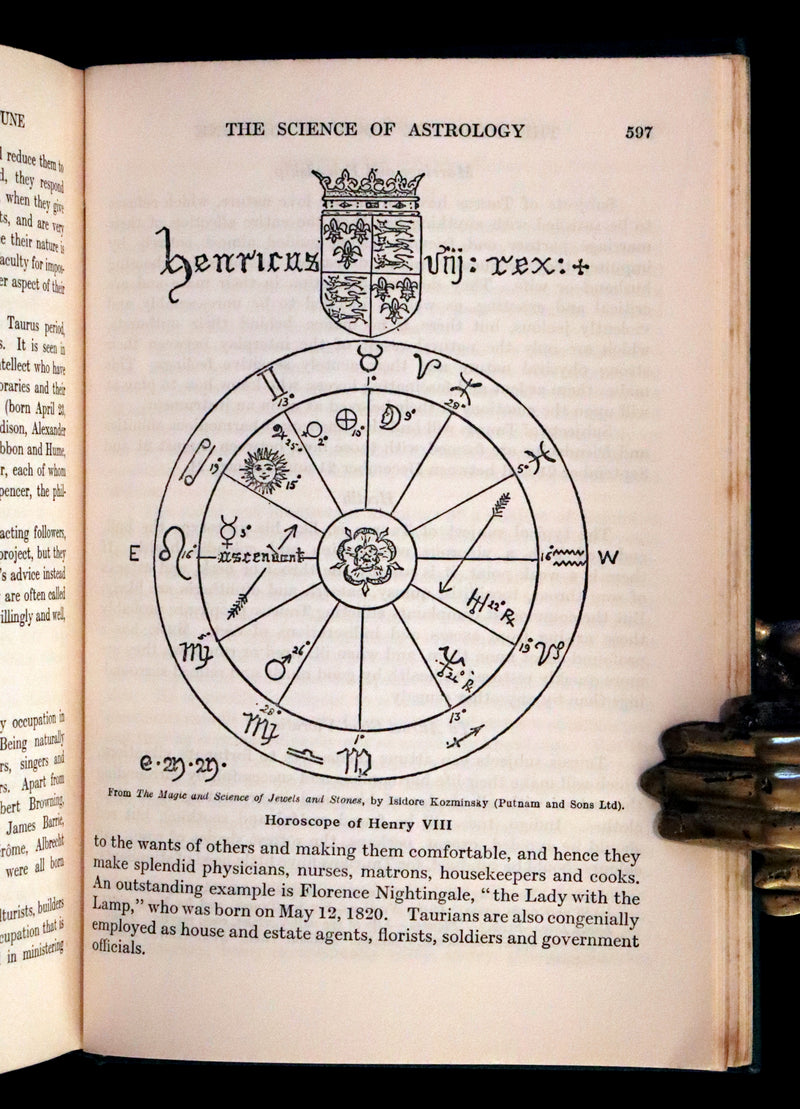 UNE
reduce them to
d, they respond
when they give
ts, and are very
e their nature is
aculty for impos-
er aspect of their
Taurus period,
s. It is seen in
ntellect who have
braries and their
(born April 23,
dison, Alexander
bbon and Hume,
r, each of whom
pencer, the phil-
acting followers,
project, but they
's advice instead
are often called
illingly and well,
y occupation in
Being naturally
rs, singers and
rs. Apart from
bert Browning,
James Barrie,
rôme, Albrecht
were all born
lturists, builders
cupation that is
in ministering
THE SCIENCE OF ASTROLOGY 597
henricus viij: rex:+
♉ ♈ ♓
1° 28°
♊ 13°
♃ 25° ♀ 2° ⊕ 10° ☽ 9°
♋ 19° ☉ 15° 5° ♓
☿ 3°
E ♌ 16° ascendant 16° ♒ W
♅ 22° ℞
♍ 5° 19° ♑
♂ 26° ♆ ℞
♍ 28° ♎ ♏ 1° 13° ♐
e·m·m·
From The Magic and Science of Jewels and Stones, by Isidore Kozminsky (Putnam and Sons Ltd).
Horoscope of Henry VIII
to the wants of others and making them comfortable, and hence they
make splendid physicians, nurses, matrons, housekeepers and cooks.
An outstanding example is Florence Nightingale, “the Lady with the
Lamp,” who was born on May 12, 1820. Taurians are also congenially
employed as house and estate agents, florists, soldiers and government
officials.